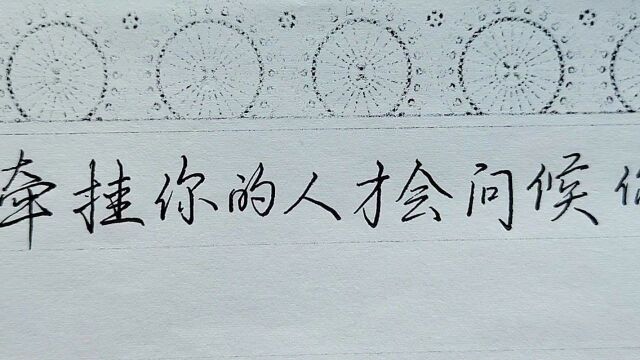 牵挂你的人才会问候